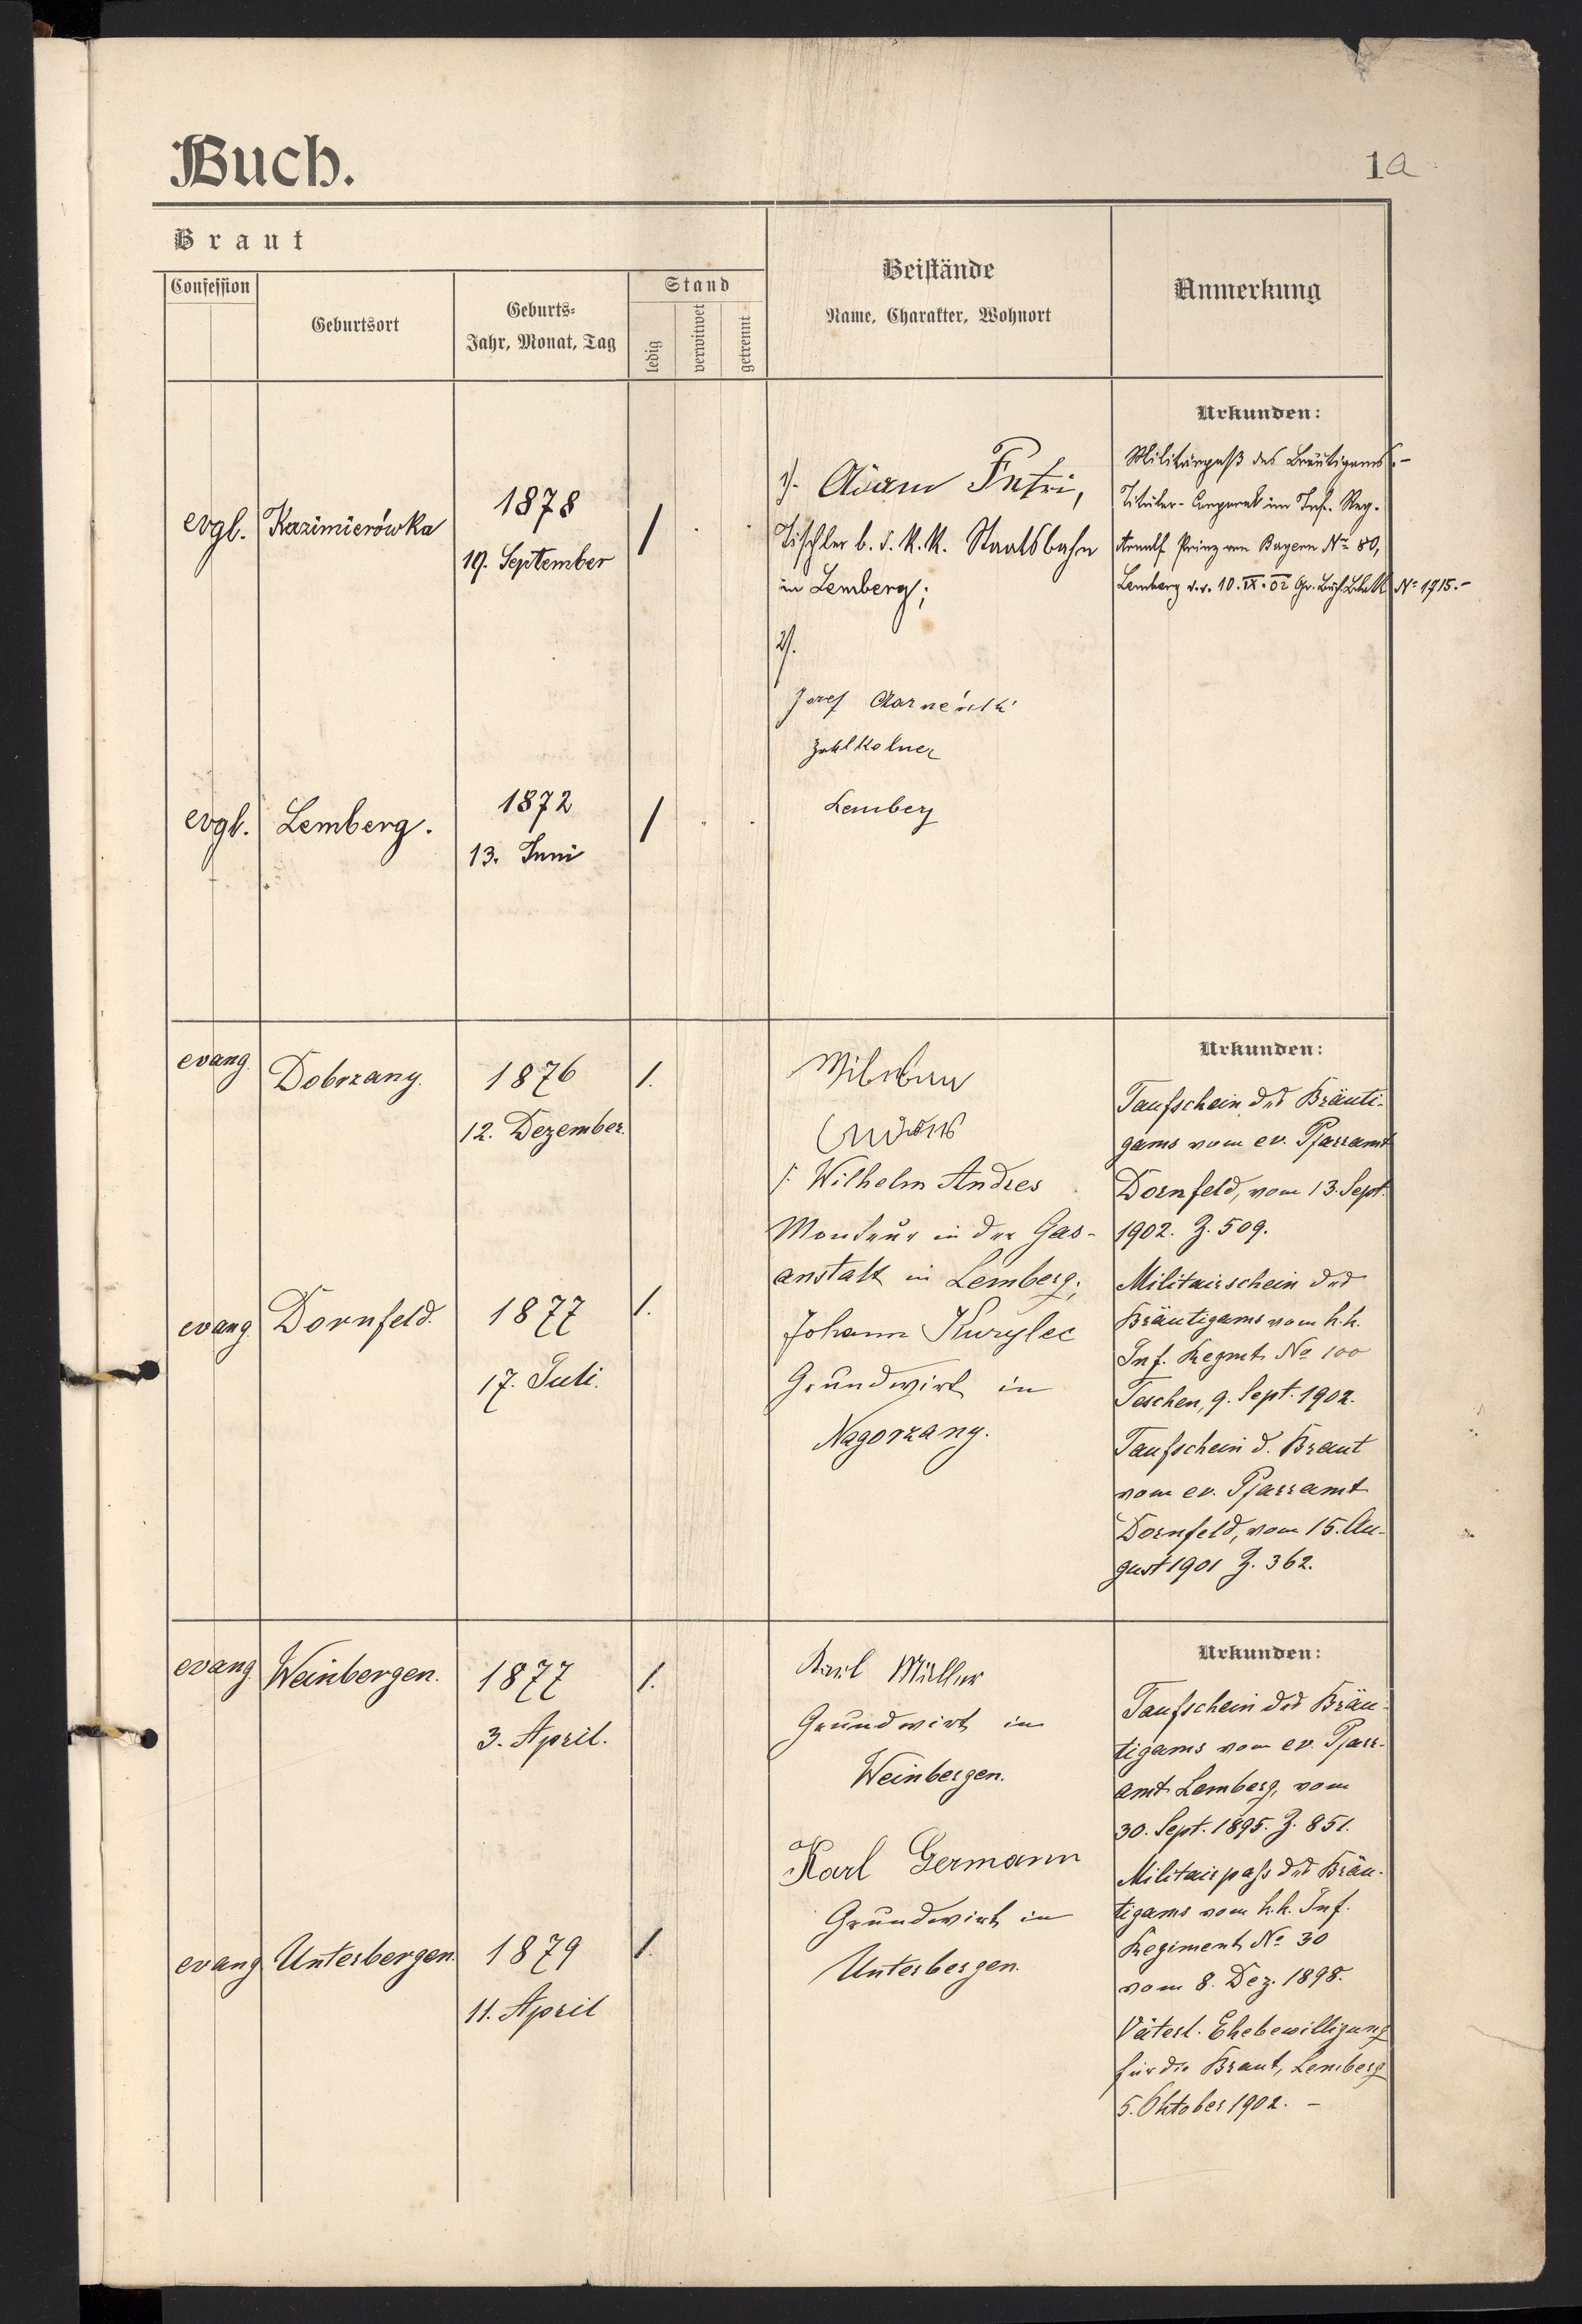 Buch.
1a
Braut
Confession
Geburtsort
Geburts-
Jahr, Monat, Tag
Stand
ledig
verwitwet
getrennt
Beistände
Name, Charakter, Wohnort
Anmerkung
Urkunden:
evgl.
Kazimierówka
1878
19. September
/
1). Adam Petri,
Tischler b. d. K. K. Staatsbahn
in Lemberg;
2).
Josef
Lemberg
Militärpaß des Bräutigams:-
Titular-Corporal im Inf. Reg.
Arnulf Prinz von Bayern № 80,
Lemberg v. 10. IX. 02 Gr. Buch Blatt № 1715.-
evgl.
Lemberg.
1872
13. Juni
/
evang.
Dobrzany.
1876
12. Dezember.
1.
Wilhelm
Andres
/: Wilhelm Andres
Monteur in der Gas-
anstalt in Lemberg;
Johann Kurylec
Grundwirt in
Nagorzany.
Urkunden:
Taufschein des Bräuti-
gams vom ev. Pfarramt
Dornfeld, vom 13. Sept.
1902. Z. 509.
Militairschein des
Bräutigams vom k.k.
Inf. Regmt. № 100
Teschen, 9. Sept. 1902.
Taufschein d. Braut
vom ev. Pfarramt
Dornfeld, vom 15. Au-
gust 1901 Z. 362.
evang.
Dornfeld.
1877
17. Juli.
1.
evang.
Weinbergen.
1877
3. April.
1.
Karl Müller
Grundwirt in
Weinbergen.
Karl Germann
Grundwirt in
Unterbergen.
Urkunden:
Taufschein des Bräu-
tigams vom ev. Pfarr-
amt Lemberg, vom
30. Sept. 1895. Z. 851.
Militairpass des Bräu-
tigams vom k.k. Inf.
Regiment № 30
vom 8. Dez. 1898.
Väterl. Ehebewilligung
für die Braut, Lemberg
5. Oktober 1902. -
evang.
Unterbergen.
1879
11. April
1.